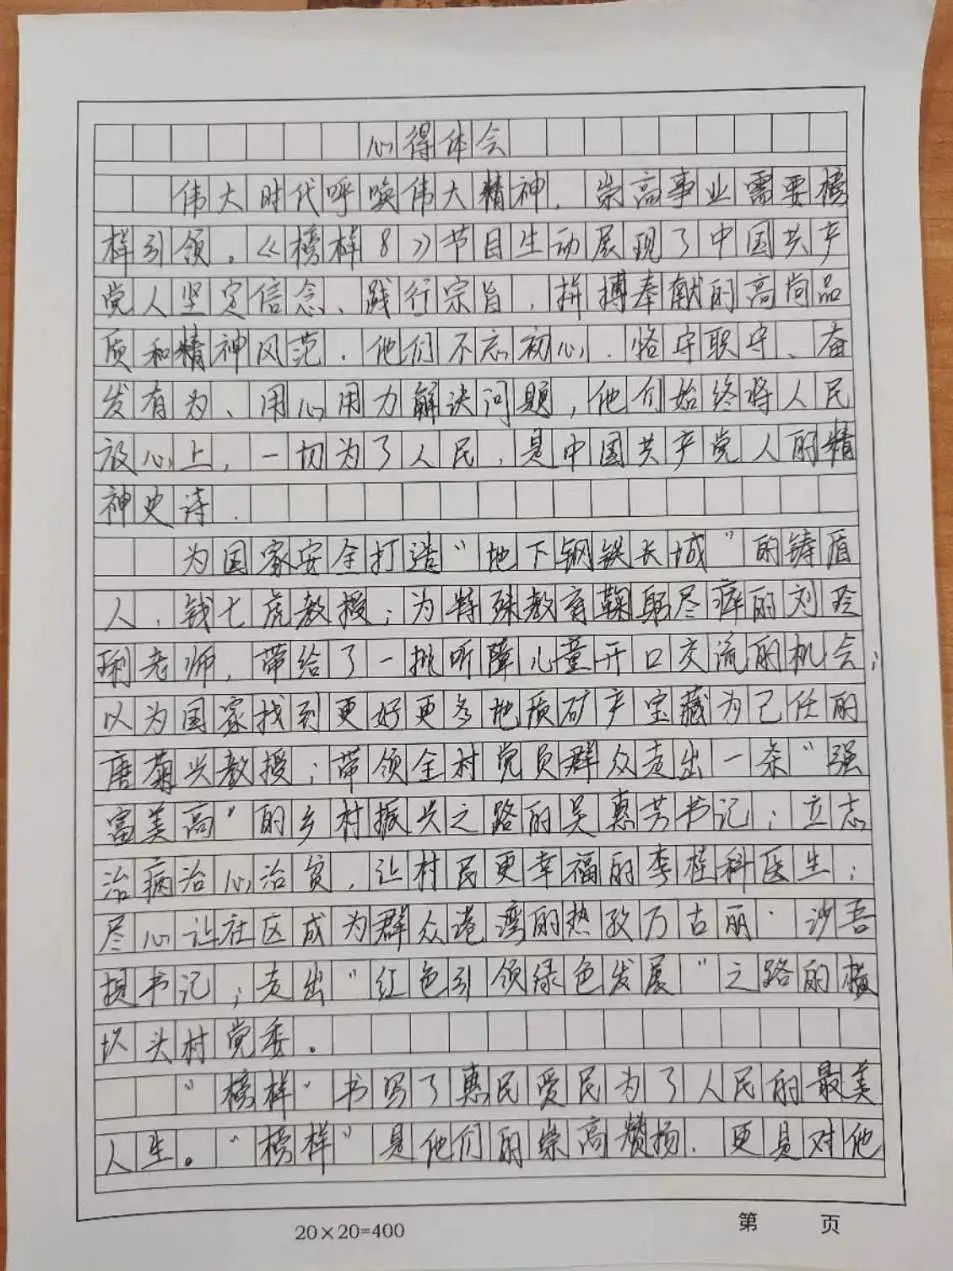 心得体会
伟大时代呼唤伟大精神，崇高事业需要榜
样引领。《榜样8》节目生动展现了中国共产
党人坚定信念、践行宗旨、拼搏奉献的高尚品
质和精神风范，他们不忘初心、恪守职守、奋
发有为、用心用力解决问题，他们始终将人民
放心上，一切为了人民，是中国共产党人的精
神史诗.
为国家安全打造"地下钢铁长城"的铸盾
人，钱七虎教授；为特殊教育鞠躬尽瘁的刘玲
琍老师，带给了一批听障儿童开口交流的机会；
以为国家找到更好更多地质矿产宝藏为己任的
唐菊兴教授；带领全村党员群众走出一条"强
富美高"的乡村振兴之路的吴惠芳书记；立志
治病治心治贫，让村民更幸福的李桂科医生；
尽心让社区成为群众港湾的热孜万古丽·沙吾
提书记；走出"红色引领绿色发展"之路的横
坎头村党委。
"榜样"书写了惠民爱民为了人民的最美
人生。"榜样"是他们的崇高赞扬，更是对他
20×20=400
第 页